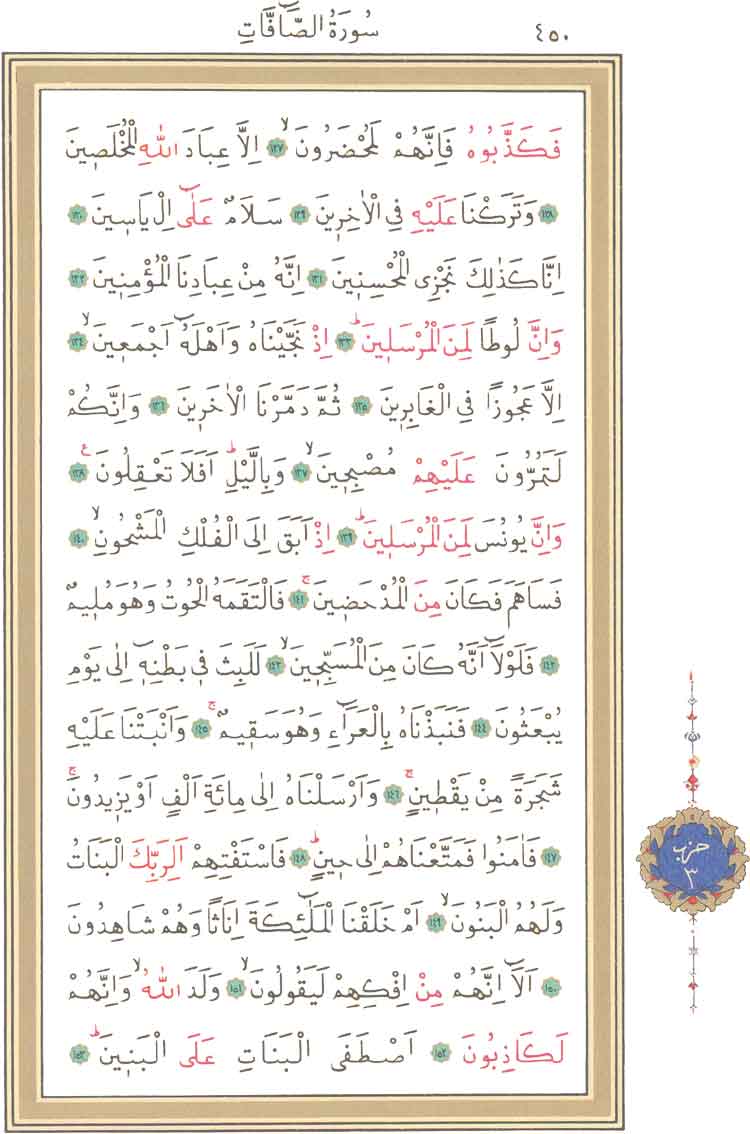 ٤٥٠
سُورَةُ الصَّٓافَّاتِ
فَكَذَّبُوهُ فَاِنَّهُمْ لَمُحْضَرُونَۙ ﴿١٢٧﴾ اِلَّا عِبَادَ اللّٰهِ الْمُخْلَص۪ينَ
﴿١٢٨﴾ وَتَرَكْنَا عَلَيْهِ فِي الْاٰخِر۪ينَ ﴿١٢٩﴾ سَلَامٌ عَلٰٓى اِلْ يَاس۪ينَ ﴿١٣٠﴾
اِنَّا كَذٰلِكَ نَجْزِي الْمُحْسِن۪ينَ ﴿١٣١﴾ اِنَّهُ مِنْ عِبَادِنَا الْمُؤْمِن۪ينَ ﴿١٣٢﴾
وَاِنَّ لُوطًا لَمِنَ الْمُرْسَل۪ينَۜ ﴿١٣٣﴾ اِذْ نَجَّيْنَاهُ وَاَهْلَهُٓ اَجْمَع۪ينَۙ ﴿١٣٤﴾
اِلَّا عَجُوزًا فِي الْغَابِر۪ينَ ﴿١٣٥﴾ ثُمَّ دَمَّرْنَا الْاٰخَر۪ينَ ﴿١٣٦﴾ وَاِنَّكُمْ
لَتَمُرُّونَ عَلَيْهِمْ مُصْبِح۪ينَۙ ﴿١٣٧﴾ وَبِالَّيْلِۜ اَفَلَا تَعْقِلُونَ۟ ﴿١٣٨﴾
وَاِنَّ يُونُسَ لَمِنَ الْمُرْسَل۪ينَۜ ﴿١٣٩﴾ اِذْ اَبَقَ اِلَى الْفُلْكِ الْمَشْحُونِۙ ﴿١٤٠﴾
فَسَاهَمَ فَكَانَ مِنَ الْمُدْحَض۪ينَۚ ﴿١٤١﴾ فَالْتَقَمَهُ الْحُوتُ وَهُوَ مُل۪يمٌ
﴿١٤٢﴾ فَلَوْلَٓا اَنَّهُ كَانَ مِنَ الْمُسَبِّح۪ينَۙ ﴿١٤٣﴾ لَلَبِثَ ف۪ي بَطْنِه۪ٓ اِلٰى يَوْمِ
يُبْعَثُونَ ﴿١٤٤﴾ فَنَبَذْنَاهُ بِالْعَرَٓاءِ وَهُوَ سَق۪يمٌۚ ﴿١٤٥﴾ وَاَنْبَتْنَا عَلَيْهِ
شَجَرَةً مِنْ يَقْط۪ينٍۚ ﴿١٤٦﴾ وَاَرْسَلْنَاهُ اِلٰى مِائَةِ اَلْفٍ اَوْ يَز۪يدُونَۚ
﴿١٤٧﴾ فَاٰمَنُوا فَمَتَّعْنَاهُمْ اِلٰى ح۪ينٍۜ ﴿١٤٨﴾ فَاسْتَفْتِهِمْ اَلِرَبِّكَ الْبَنَاتُ
وَلَهُمُ الْبَنُونَۙ ﴿١٤٩﴾ اَمْ خَلَقْنَا الْمَلٰٓئِكَةَ اِنَاثًا وَهُمْ شَاهِدُونَ
﴿١٥٠﴾ اَلَٓا اِنَّهُمْ مِنْ اِفْكِهِمْ لَيَقُولُونَۙ ﴿١٥١﴾ وَلَدَ اللّٰهُۙ وَاِنَّهُمْ
لَكَاذِبُونَ ﴿١٥٢﴾ اَصْطَفَى الْبَنَاتِ عَلَى الْبَن۪ينَۜ ﴿١٥٣﴾
حزب
٣